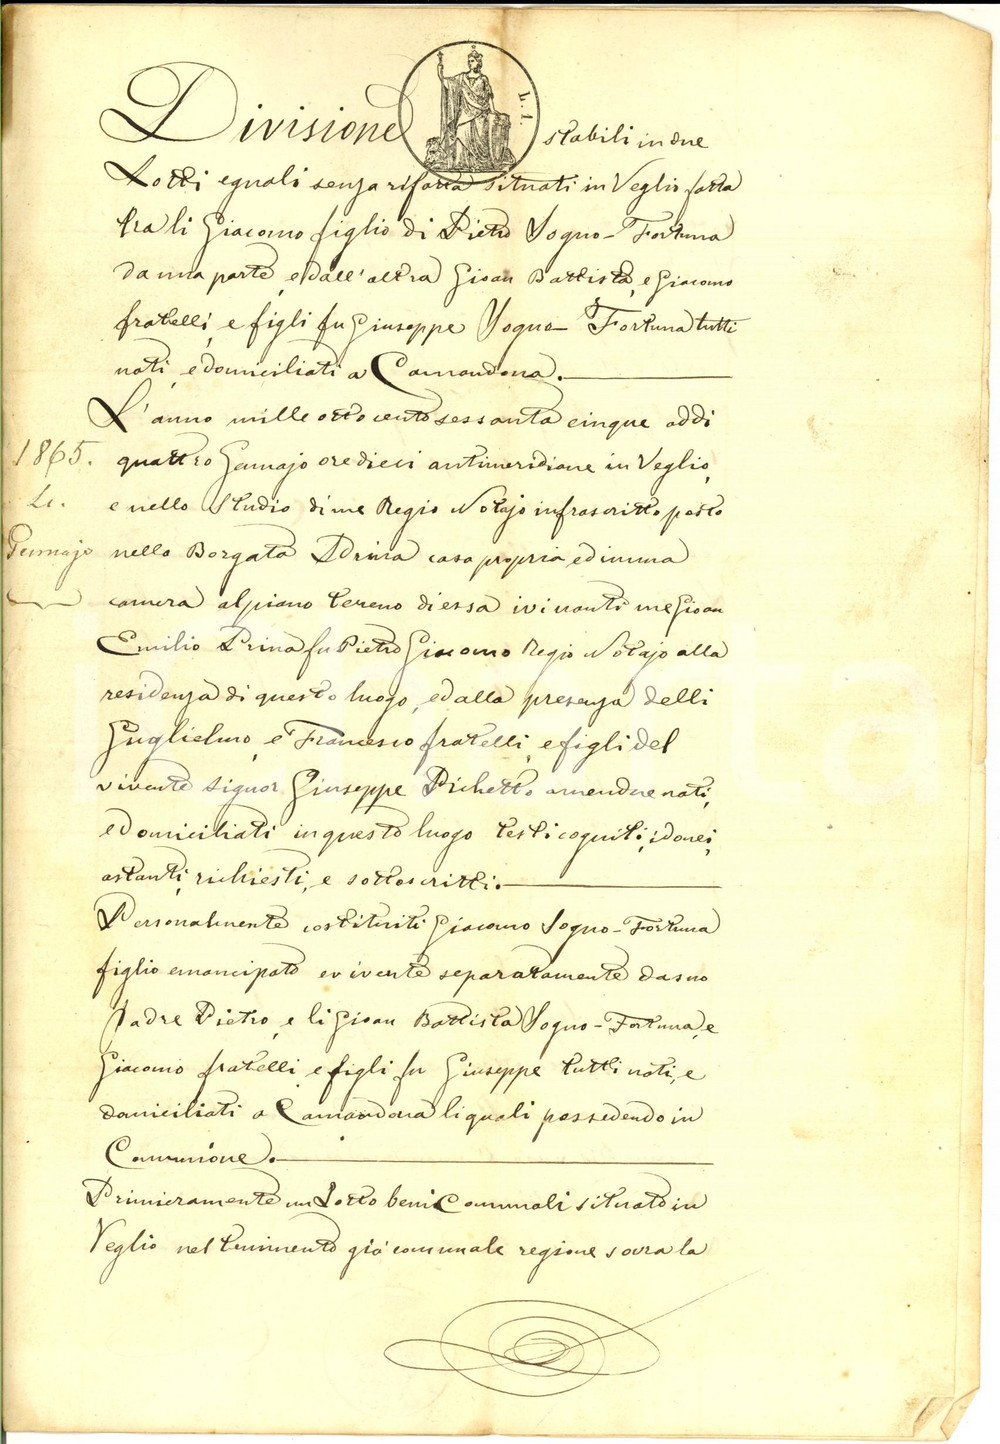 Divisione stabili in due
L. 1.
Lotti eguali senza rifatta situati in Veglio fatta
tra li Giacomo figlio di Pietro Sogno-Fortuna
da una parte, e dall'altra Gioan Battista, e Giacomo
fratelli, e figli fu Giuseppe Sogno-Fortuna tutti
nati, e domiciliati a Camandona.
L'anno mille ottocento sessanta cinque addi
1865.
quattro Gennajo ore dieci antimeridiane in Veglio,
Li.
e nello Studio di me Regio Notajo infrascritto posto
Gennajo
nello Borgata Prina casa propria ed in una
camera al piano tereno di essa ivi nanti me Gioan
Emilio Prina fu Pietro Giacomo Regio Notajo alla
residenza di questo luogo, ed alla presenza delli
Guglielmo, e Francesco fratelli, e figli del
vivente signor Giuseppe Pichetto amendue nati,
e domiciliati in questo luogo testi cogniti, idonei,
astanti, richiesti, e sottoscritti.
Personalmente costituiti Giacomo Sogno-Fortuna
figlio emancipato e vivente separatamente da suo
Padre Pietro, e li Gioan Battista Sogno-Fortuna, e
Giacomo fratelli, e figli fu Giuseppe tutti nati, e
domiciliati a Camandona li quali possedendo in
Comunione.
Primieramente un Lotto beni Comunali situato in
Veglio nel tenimento già comunale regione sovra la